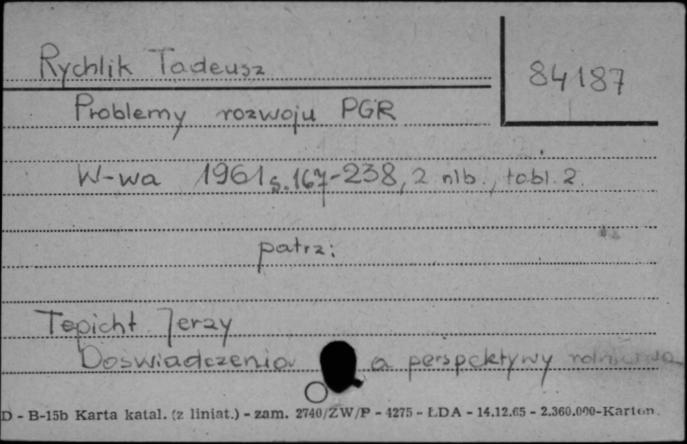 Rychlik Tadeusz
84187
Problemy rozwoju PGR
W-wa 1961 s. 167-238, 2 nlb., tabl. 2.
patrz:
Tepicht Jerzy
Doświadczenia a perspektywy rolnictwa
D - B-15b Karta katal. (z liniat.) - zam. 2740/ZW/P - 4275 - ŁDA - 14.12.65 - 2.360.000-Karton.